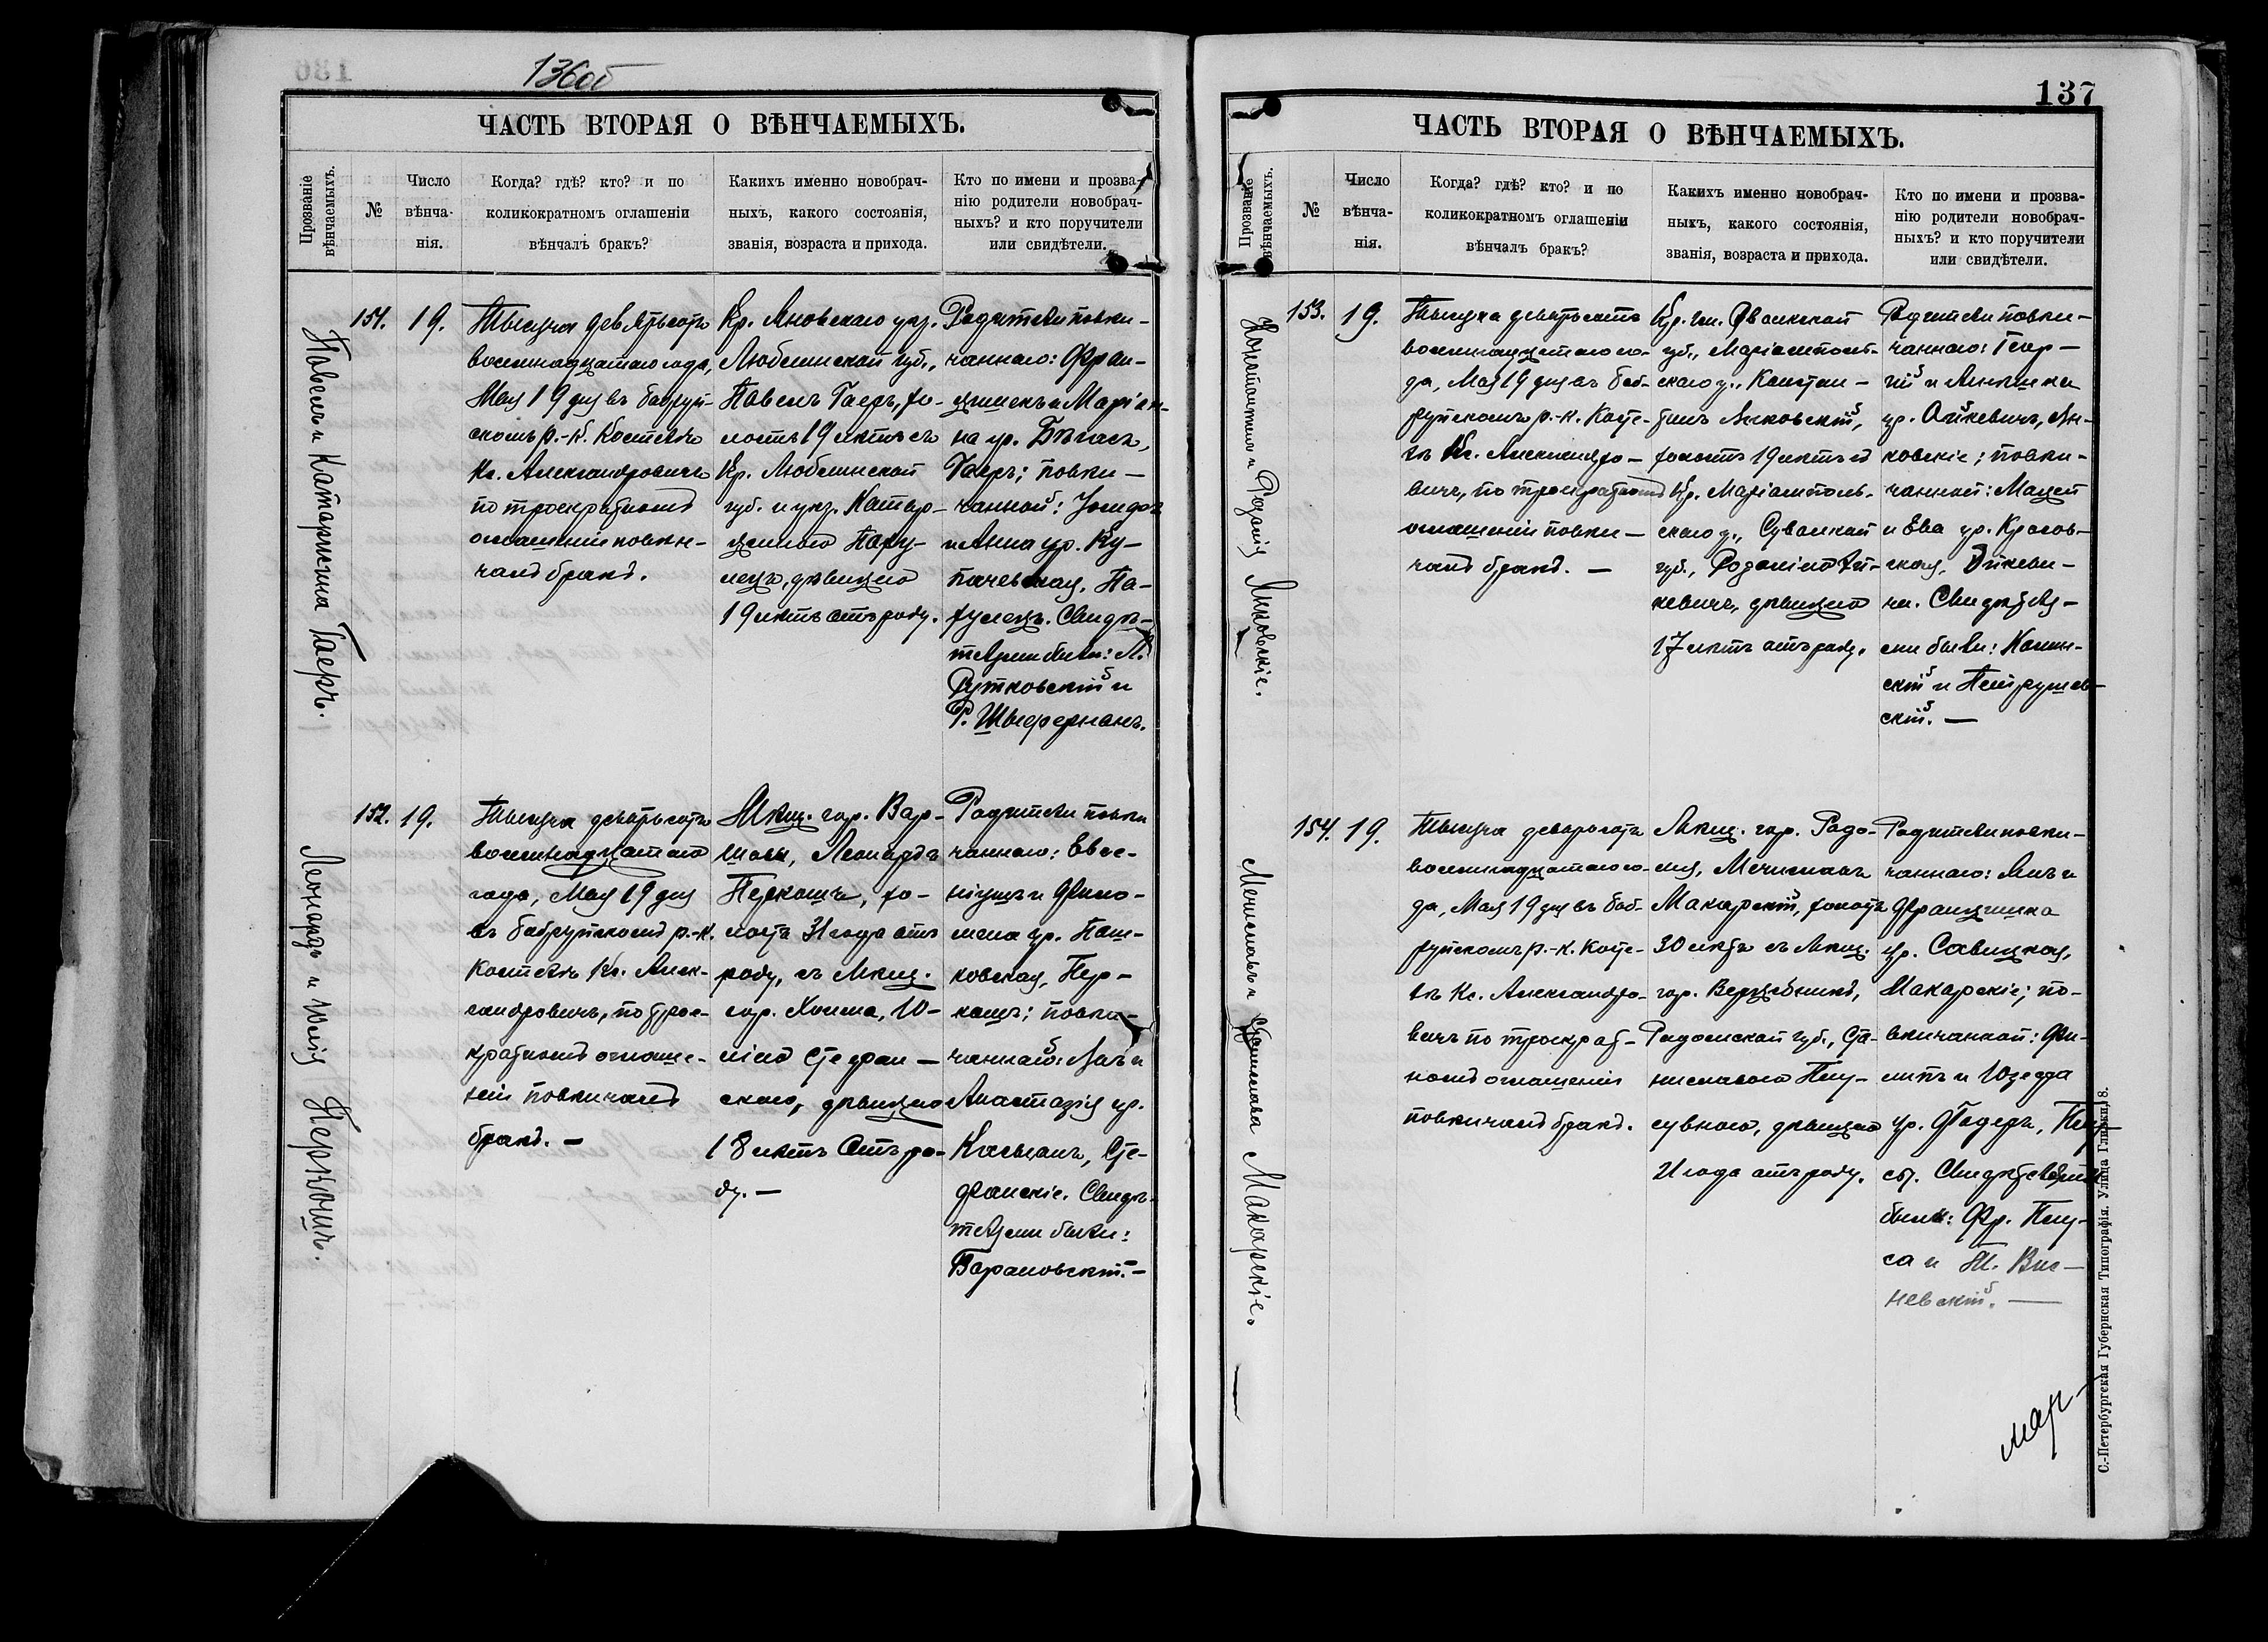 136об
ЧАСТЬ ВТОРАЯ О ВѢНЧАЕМЫХЪ.
Прозваніе вѣнчаемыхъ.
№
Число вѣнча-
нія.
Когда? гдѣ? кто? и по
коликократномъ оглашеніи
вѣнчалъ бракъ?
Какихъ именно новобрач-
ныхъ, какого состоянія,
званія, возраста и прихода.
Кто по имени и прозва-
нію родители новобрач-
ныхъ? и кто поручители
или свидѣтели.
Павелъ и Катаржина Гаеръ.
151.
19.
Тысяча девятьсотъ
восемнадцатаго года,
Мая 19 дня въ Бобруй-
скомъ р.-к. Костелѣ
Кс. Александровичъ
по троекратномъ
оглашеніи повѣн-
чалъ бракъ.
Кр. Яновскаго уѣз.
Люблинской губ.,
Павелъ Гаеръ, хо-
лостъ 19 лѣтъ съ
Кр. Люблинской
губ. и уѣз. Катар-
жиною
19 лѣтъ отъ роду.
Родители повѣн-
чаннаго: Фран-
цишекъ и Маріан-
на ур.
Гаеръ; повѣн-
чанной:
и Анна ур. Ку-
Свидѣ-
телями были: Л.
Рутковскій и
Р.
Леонардъ и Юлія Перкошъ.
152.
19.
Тысяча девятьсотъ
восемнадцатаго
года, Мая 19 дня
въ Бобруйскомъ р.-к.
Костелѣ Кс. Алек-
сандровичъ, по трое-
кратномъ оглаше-
ніи повѣнчалъ
бракъ. —
Мѣщ. гор. Вар-
шавы, Леонардъ
Перкошъ, хо-
лостъ 31 года отъ
роду, съ Мѣщ.
гор. Холма, Ю-
ліею Стефан-
скою, дѣвицею
18 лѣтъ отъ ро-
ду. —
Родители повѣн
чаннаго: Евге-
ніушъ и Фило-
мена ур. Паш-
ковская, Пер-
кошъ; повѣн-
чанной: Янъ и
Анастазія ур.
Сте-
фанскіе. Свидѣ-
телями были:
Барановскій. —
137
ЧАСТЬ ВТОРАЯ О ВѢНЧАЕМЫХЪ.
Прозваніе вѣнчаемыхъ.
№
Число вѣнча-
нія.
Когда? гдѣ? кто? и по
коликократномъ оглашеніи
вѣнчалъ бракъ?
Какихъ именно новобрач-
ныхъ, какого состоянія,
званія, возраста и прихода.
Кто по имени и прозва-
нію родители новобрач-
ныхъ? и кто поручители
или свидѣтели.
Константинъ и Розалія Янковскіе.
153.
19.
Тысяча девятьсотъ
восемнадцатаго го-
да, Мая 19 дня въ Боб-
руйскомъ р.-к. Косте-
лѣ Кс. Александро-
вичъ, по троекратномъ
оглашеніи повѣн-
чалъ бракъ. —
губ., Маріамполь-
скаго у., Констан-
тинъ Янковскій,
холостъ 19 лѣтъ съ
Кр. Маріамполь-
скаго у., Сувалкской
губ., Розаліею Ай-
кевичъ, дѣвицею
17 лѣтъ отъ роду.
Родители повѣн-
чаннаго: Геор-
гій и
ур. Айкевичъ, Ян-
ковскіе; повѣн-
чанной: Мацей
и Ева ур.
Айкеви-
чи. Свидѣтеля-
ми были:
скій и Петрушев-
скій. —
Мечиславъ и Станислава Макарскіе.
154.
19.
Тысяча девятьсотъ
восемнадцатаго го-
да, Мая 19 дня въ Боб-
руйскомъ р.-к. Косте-
лѣ Кс. Александро-
вичъ по троекрат-
номъ оглашеніи
повѣнчалъ бракъ.
Мѣщ. гор. Радо-
мля, Мечиславъ
Макарскій, холостъ
30 лѣтъ съ Мѣщ.
гор.
Радомской губ., Ста-
ниславою
дѣвицею
21 года отъ роду.
Родители повѣн-
чаннаго: Янъ и
Францишка
ур. Савицкая,
Макарскіе; по-
вѣнчанной: Фи-
липъ и Юзефа
ур.
Свидѣтелями
были: Фр.
са и
невскій. —
С.-Петербургская Губернская Типографія. Улица Глинки, 8.